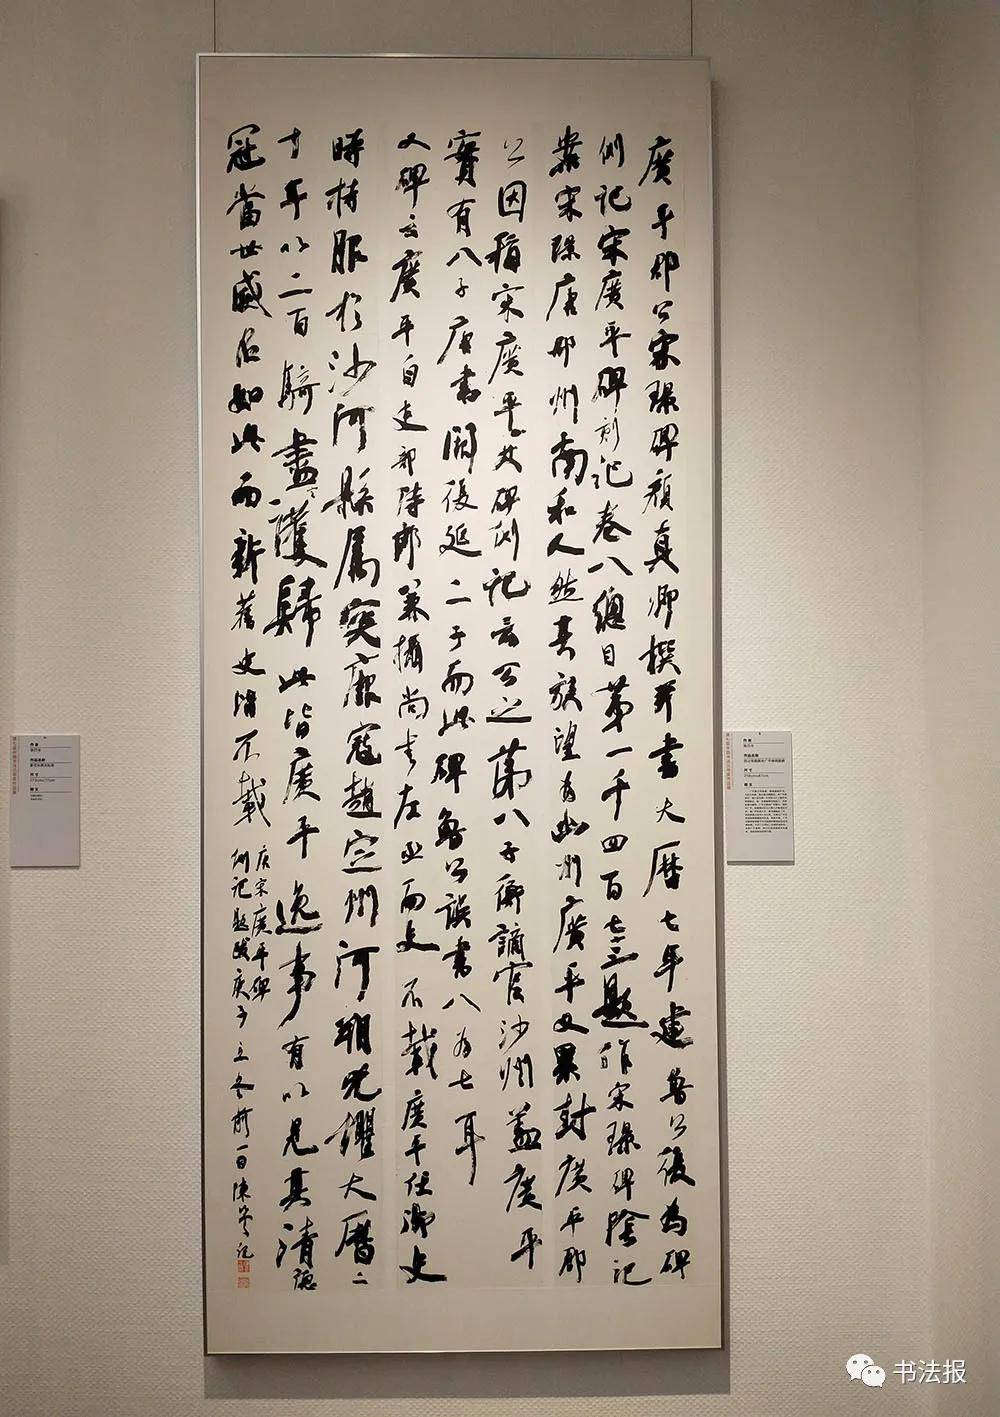 廣平郡公宋璟碑顏真卿撰並書大曆七年建魯公後為碑
側記宋廣平碑側記卷八總目第一千四百七十三題作宋璟碑陰記
宋璟唐邢州南和人然其族望為廣平又累封廣平郡
公因稱宋廣平也碑側記云公之第八子衡謫官沙州蓋廣平
實有八子唐書闕後延二子而此碑魯公誤書八為七耳
又碑云廣平自吏部侍郎兼攝尚書左丞而史不載廣平任御史
時持服於沙河縣屬突厥寇趙定州河朔兇懼大曆二
十年以二百騎盡護歸此皆廣平逸事有以見其清德
冠當世威名如此而新舊史皆不載
唐宋廣平碑
側記題跋庚子立冬前一日陳
记
作者
作品名称
尺寸
释文
作者
作品名称
尺寸
释文
书法报